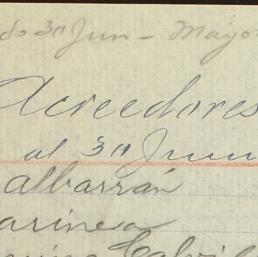 do 30 Jun - Mayo
Acreedores
al 30 Junio
Albarrán
arinea
Calvil